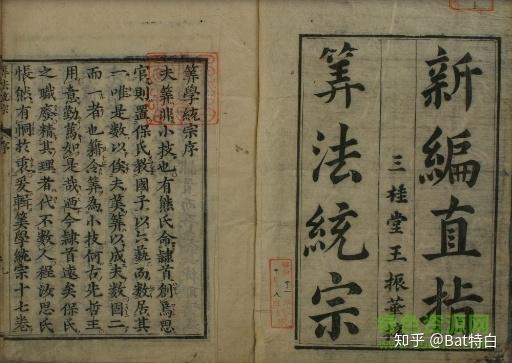 新編直指
三桂堂王振華
算法統宗
算學統宗序
夫算非小技也有熊氏命隸首創焉思
官則置保氏教國子以六藝而數居其
一唯是數以俟夫算算以成夫數圖二
而一者也籍令算為小技何古先哲王
用意勤篤如是哉迺今隸首遠矣保氏
之職廢精其理者代不數人程汝思氏
悵然有悯於衷爰輯算學統宗十七卷
算法統宗
序
知乎 @Bat特白